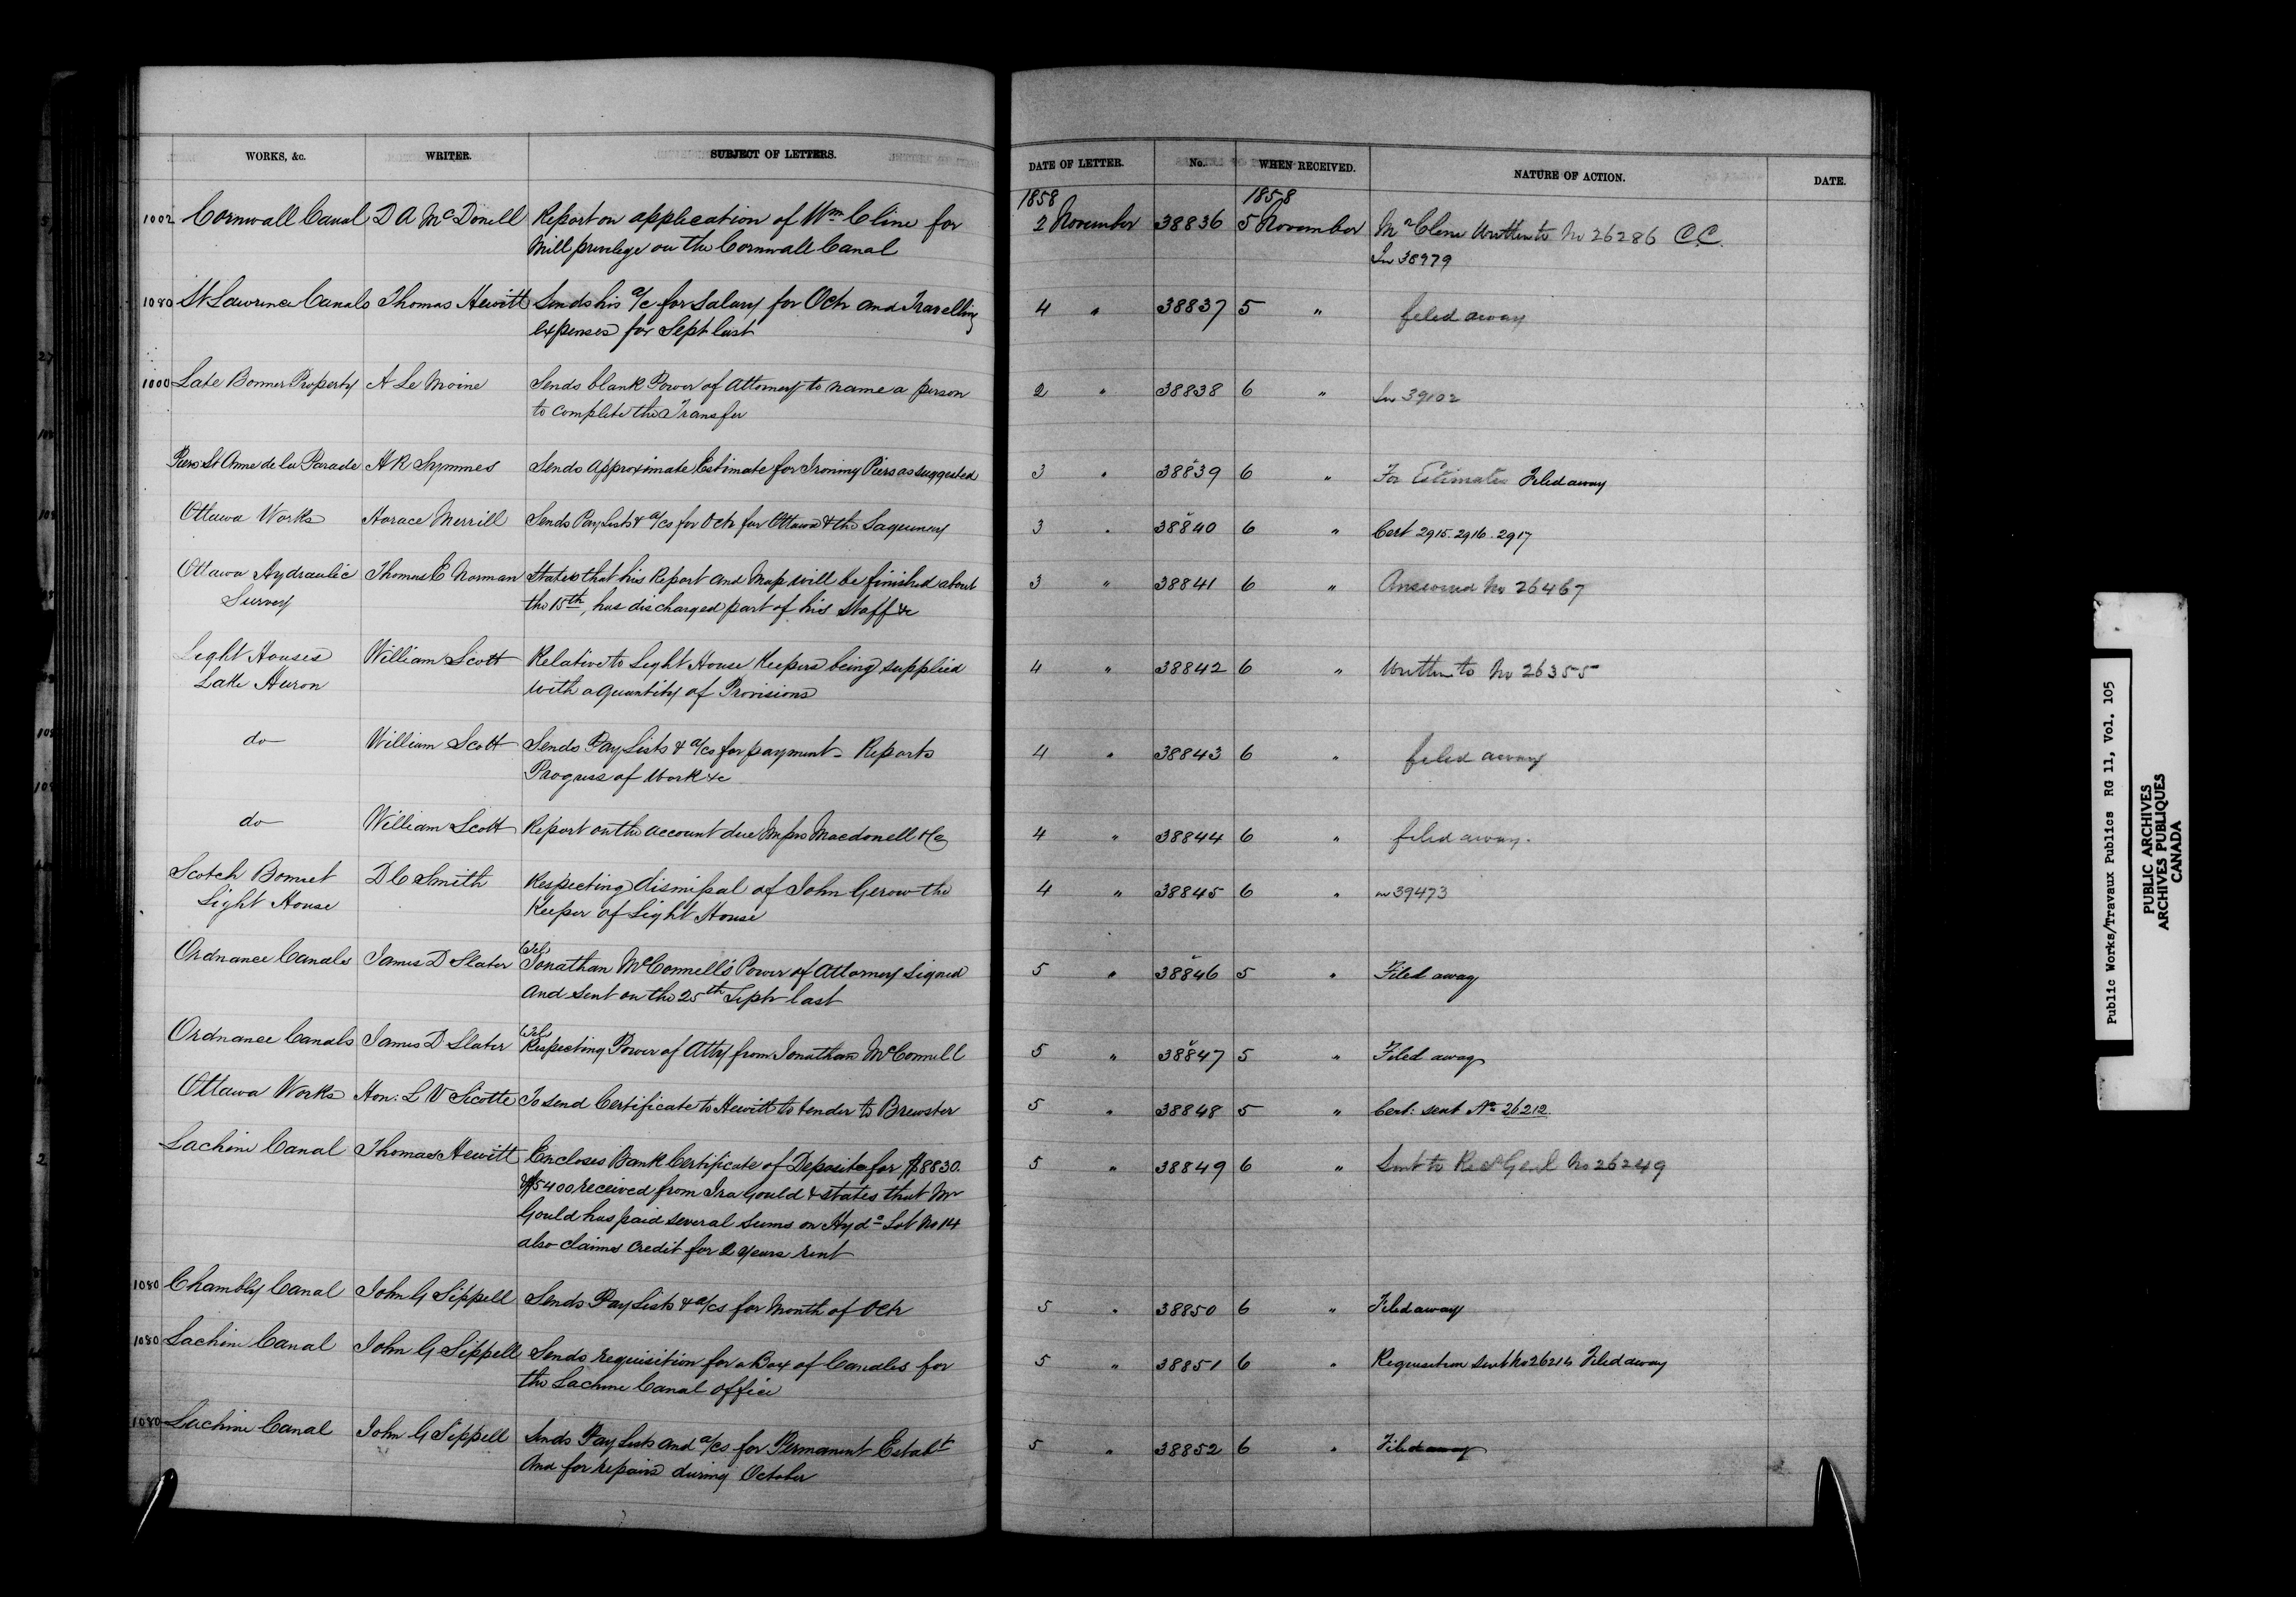 WORKS, &c. WRITER. SUBJECT OF LETTERS. DATE OF LETTER. No. WHEN RECEIVED. NATURE OF ACTION. DATE.
1858 1858
1002 Cornwall Canal D A McDonell Report on application of Wm Cline for 2 November 38836 5 November Mr Cline written to No 26286 C.C.
Mill privilege on the Cornwall Canal See 38979
1080 St Lawrence Canals Thomas Hewitt Sends his a/c for Salary for Octr and Travelling 4 " 38837 5 " filed away
expenses for Sept last
1000 Late Bonner Property A Le Moine Sends blank Power of Attorney to name a person 2 " 38838 6 " See 39102
to complete the Transfer
Piers St Anne de la Parade H R Symmes Sends Approximate Estimate for Ironing Piers as suggested 3 " 38839 6 " For Estimates Filed away
Ottawa Works Horace Merrill Sends Pay Lists & a/cs for Octr for Ottawa & the Saguenay 3 " 38840 6 " Cert 2915. 2916. 2917
Ottawa Hydraulic Thomas E Norman States that his Report and Map will be finished about 3 " 38841 6 " Answered No 26467
Survey the 15th, has discharged part of his Staff &c
Light Houses William Scott Relative to Light House Keepers being supplied 4 " 38842 6 " Written to No 26355
Lake Huron with a quantity of Provisions
do William Scott Sends Pay Lists & a/cs for payment - Reports 4 " 38843 6 " filed away
Progress of Work &c
do William Scott Report on the account due Messrs Macdonell & Co 4 " 38844 6 " filed away.
Scotch Bonnet D C Smith Respecting dismissal of John Gerow the 4 " 38845 6 " 39473
Light House Keeper of Light House
Tel
Ordnance Canals James D Slater Jonathan McConnell's Power of Attorney Signed 5 " 38846 5 " Filed away
And sent on the 25th Septr last
Tel
Ordnance Canals James D Slater Respecting Power of Atty from Jonathan McConnell 5 " 38847 5 " Filed away
Ottawa Works Hon: L V Sicotte To send Certificate to Hewitt to tender to Brewster 5 " 38848 5 " Cert: sent No 26212
Lachine Canal Thomas Hewitt Encloses Bank Certificate of Deposits for $8830. 5 " 38849 6 " Sent to Recr Genl No 26249
& $5400 received from Ira Gould & states that Mr
Gould has paid several sums on Hydc Lot No 14
also claims credit for 2 years rent
1080 Chambly Canal John G Sippell Sends Pay Lists & a/cs for Month of Octr 5 " 38850 6 " Filed away
1080 Lachine Canal John G Sippell Sends requisition for a Box of Candles for 5 " 38851 6 " Requisition sent No 26214 Filed away
the Lachine Canal office
1080 Lachine Canal John G Sippell Sends Pay Lists and a/cs for Permanent Establt 5 " 38852 6 " Filed away
And for repairs during October
Public Works/Travaux Publics RG 11, Vol. 105
PUBLIC ARCHIVES
ARCHIVES PUBLIQUES
CANADA